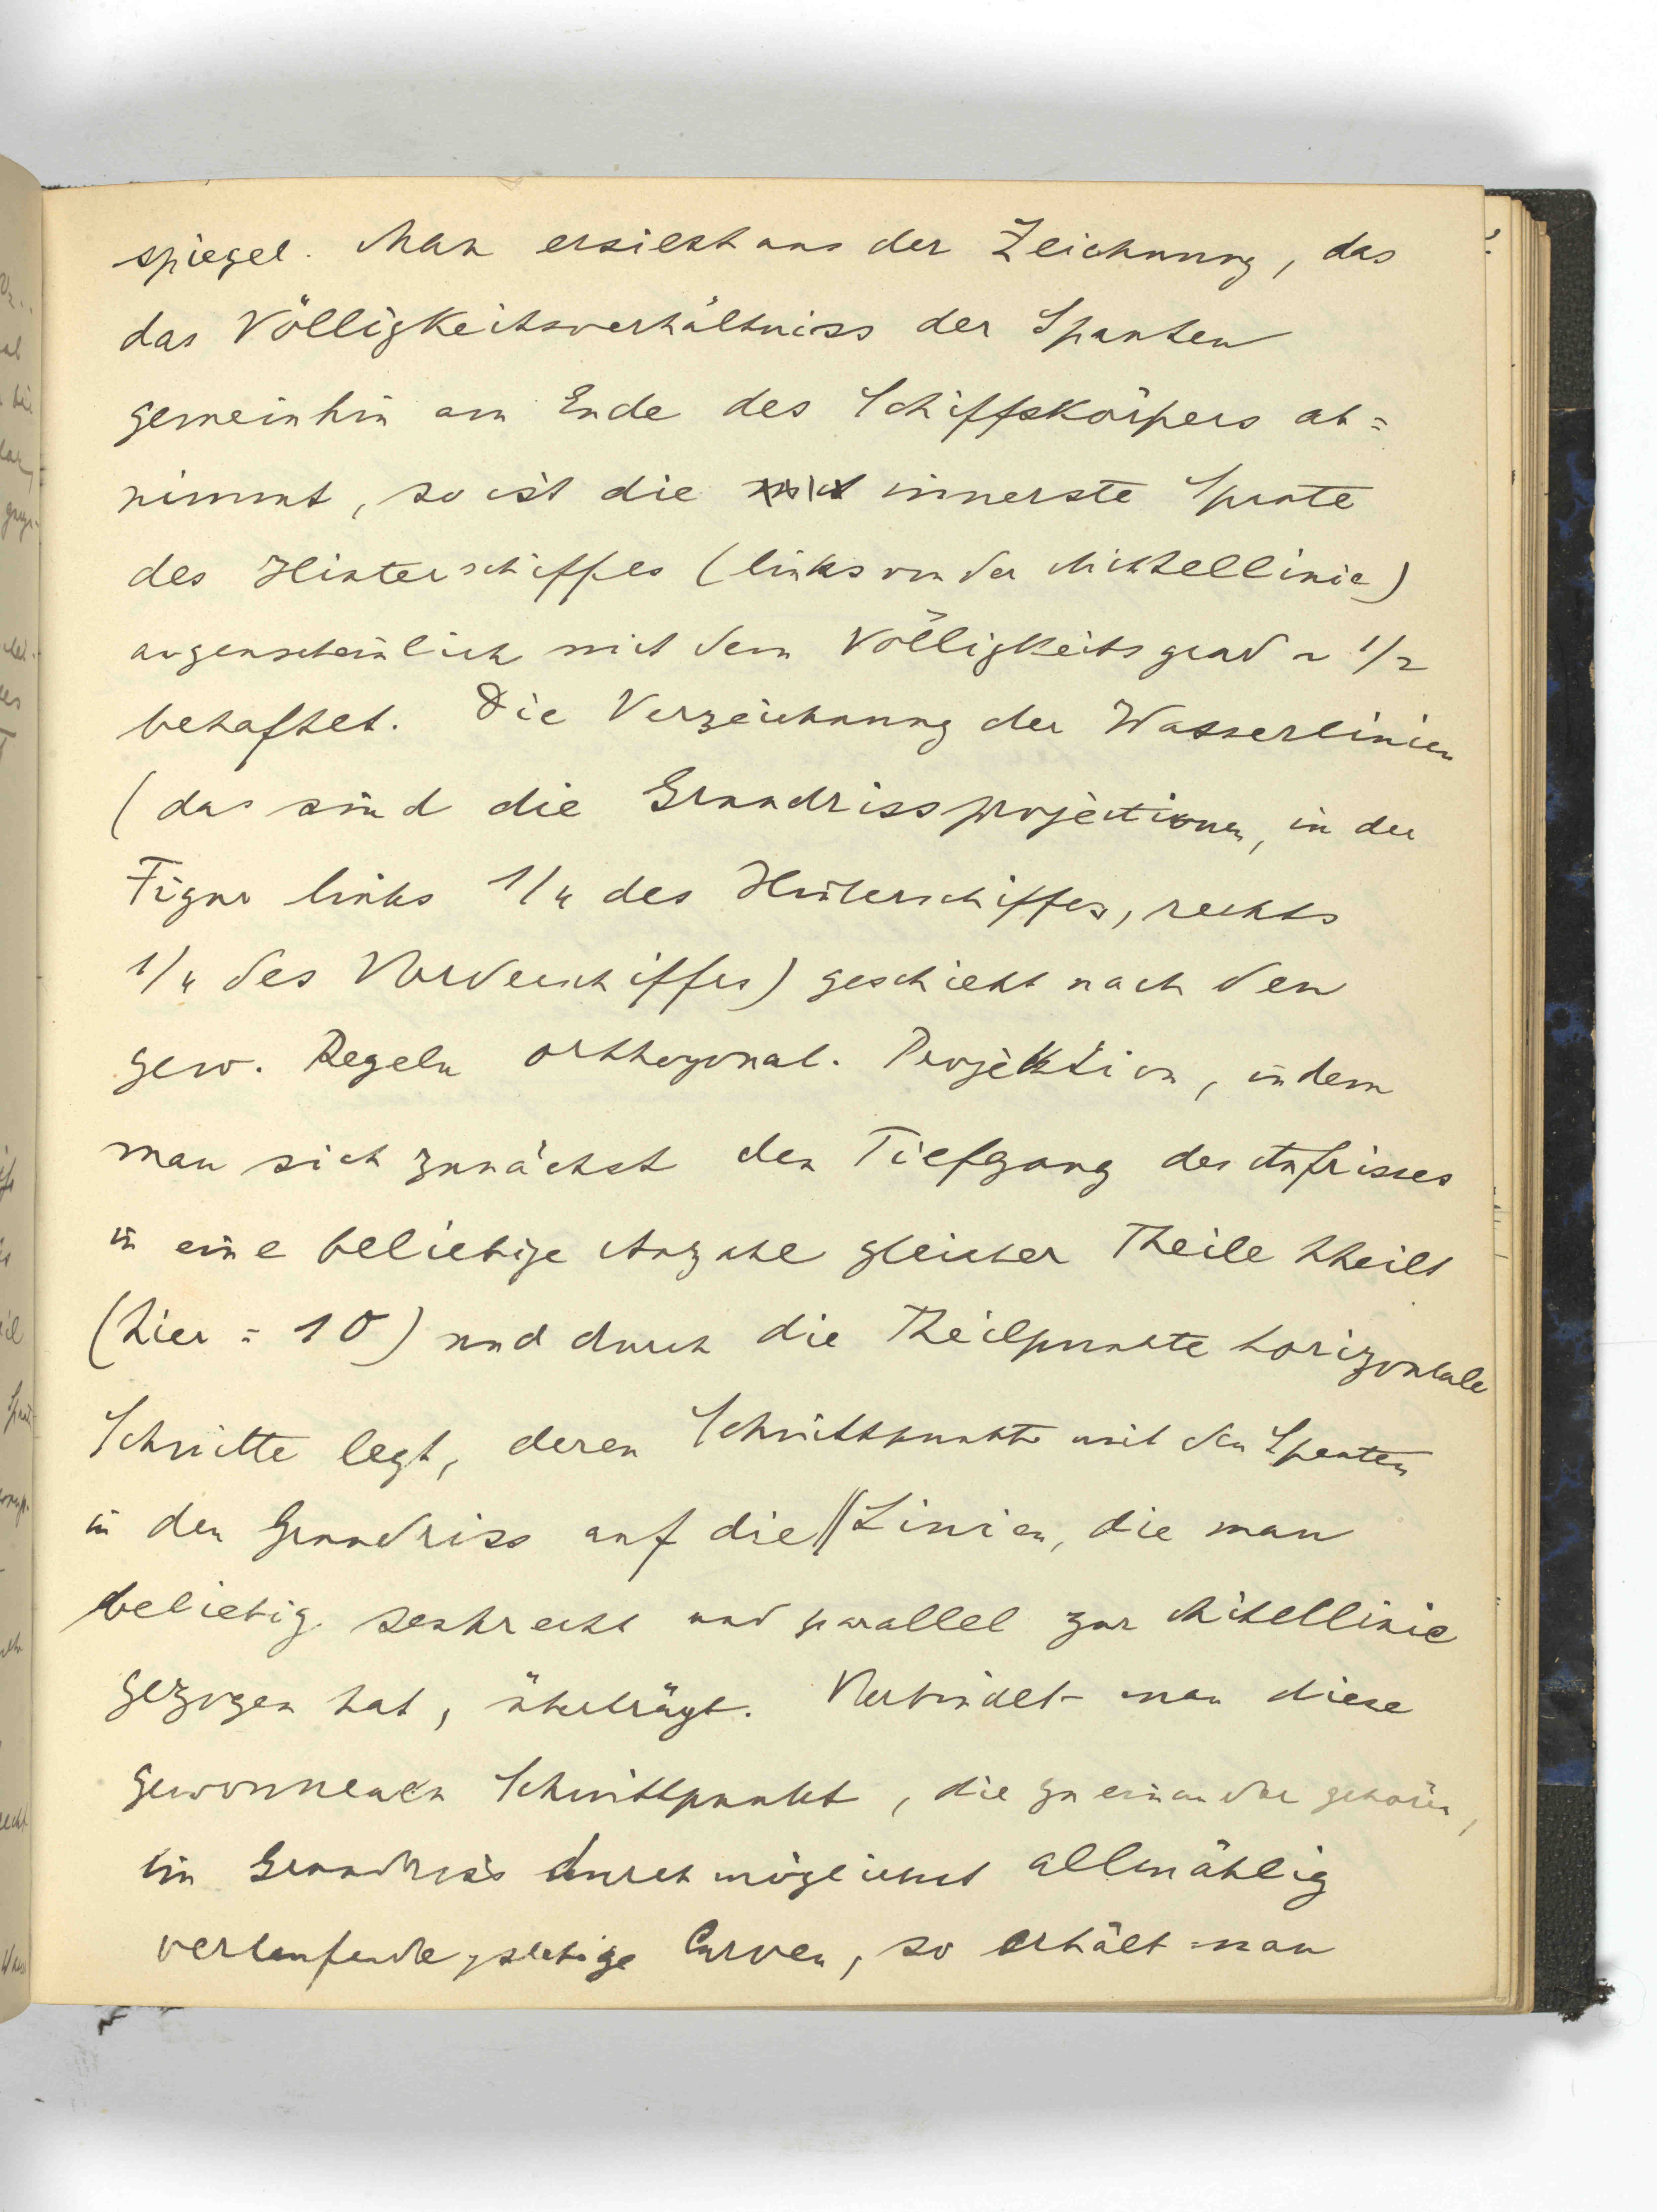 spiegel. Man ersieht aus der Zeichnung, das
das Völligkeitsverhältniss der Spanten
gemeinhin am Ende des Schiffskörpers ab=
nimmt, so ist die innerste Spante
des Hinterschiffes (links von der Mittellinie)
augenscheinlich mit dem Völligkeitsgrad ~ 1/2
behaftet. Die Verzeichnung der Wasserlinien
(das sind die Grundrissprojectionen, in der
Figur links 1/4 des Hinterschiffes, rechts
1/4 des Vorderschiffes) geschieht nach den
gew. Regeln orthogonal. Projektion, indem
man sich zunächst den Tiefgang des Aufrisses
in eine beliebige Anzahl gleicher Theile theilt
(hier = 10) und durch die Theilpunkte horizontale
Schnitte legt, deren Schnittpunkte mit den Spanten
in den Grundriss auf die || Linien, die man
beliebig senkrecht und parallel zur Mittellinie
gezogen hat, überträgt. Verbindet man diese
gewonnenen Schnittpunkte, die zu einander gehören,
im Grundriss durch möglichst allmählig
verlaufende, stetige Curven, so erhält man